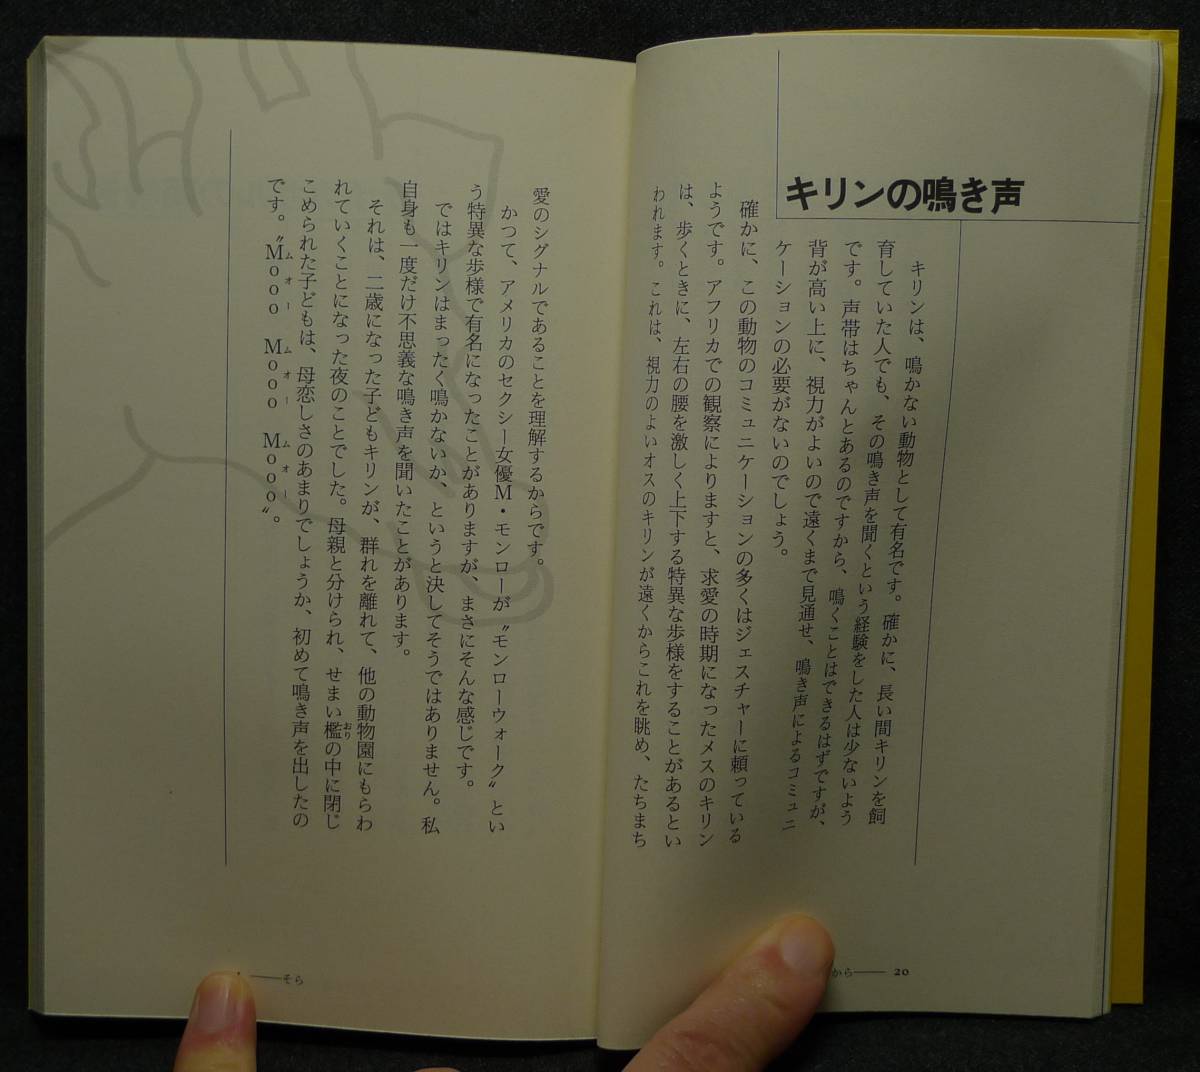 キリンの鳴き声
キリンは、鳴かない動物として有名です。確かに、長い間キリンを飼
育していた人でも、その鳴き声を聞くという経験をした人は少ないよう
です。声帯はちゃんとあるのですから、鳴くことはできるはずですが、
背が高い上に、視力がよいので遠くまで見通せ、鳴き声によるコミュニ
ケーションの必要がないのでしょう。
確かに、この動物のコミュニケーションの多くはジェスチャーに頼っている
ようです。アフリカでの観察によりますと、求愛の時期になったメスのキリン
は、歩くときに、左右の腰を激しく上下する特異な歩様をすることがあるとい
われます。これは、視力のよいオスのキリンが遠くからこれを眺め、たちまち
から——20
愛のシグナルであることを理解するからです。
かつて、アメリカのセクシー女優M・モンローが〝モンローウォーク〟とい
う特異な歩様で有名になったことがありますが、まさにそんな感じです。
ではキリンはまったく鳴かないか、というと決してそうではありません。私
自身も一度だけ不思議な鳴き声を聞いたことがあります。
それは、二歳になった子どもキリンが、群れを離れて、他の動物園にもらわ
れていくことになった夜のことでした。母親と分けられ、せまい檻おりの中に閉じ
こめられた子どもは、母恋しさのあまりでしょうか、初めて鳴き声を出したの
です。〝Moooムオー Moooムオー Moooムオー〟。
——そら